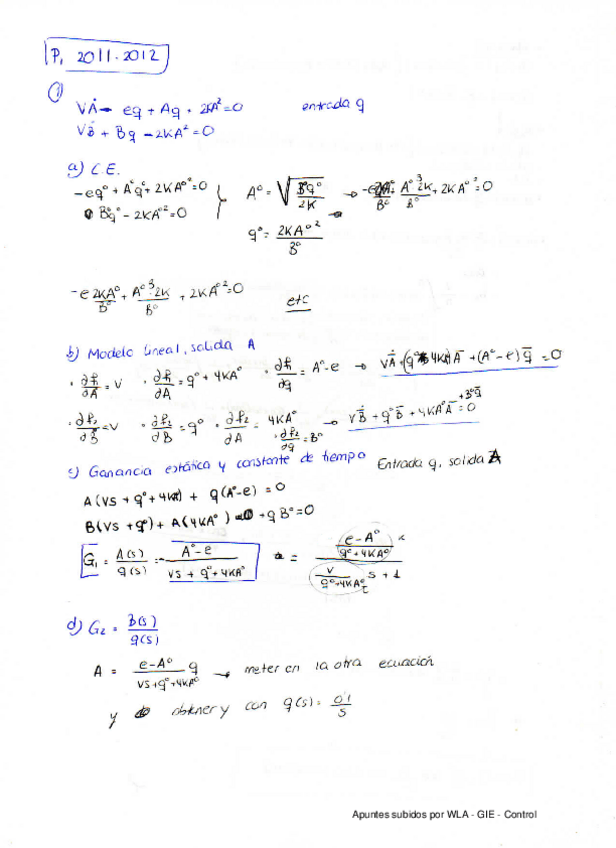 P, 2011-2012
①
VȦ - eq + Aq + 2KA² = 0 entrada q
VḂ + Bq - 2KA² = 0
a) C.E.
-eq° + A°q° + 2KA°² = 0
B°q° - 2KA°² = 0
A° = √(B°q°/2K) →
+ A°³2K/B° + 2KA°² = 0
q° = 2KA°²/B°
-e 2KA°/B° + A°³2K/B° + 2KA°² = 0
etc
b) Modelo lineal, salida A
· ∂f₁/∂Ȧ = V · ∂f₁/∂A = q° + 4KA° · ∂f₁/∂q = A° - e → VȦ + (q° + 4KA°)Ā + (A° - e)q̄ = 0
· ∂f₂/∂Ḃ = V · ∂f₂/∂B = q° · ∂f₂/∂A = 4KA° · ∂f₂/∂q = B° → VḂ + q°B̄ + 4KA°Ā + B°q̄ = 0
c) Ganancia estática y constante de tiempo Entrada q, salida A
A(VS + q° + 4KA°) + q(A° - e) = 0
B(VS + q°) + A(4KA°) + qB° = 0
G₁ = A(s)/q(s) = A° - e / VS + q° + 4KA° = (e - A° / q° + 4KA°) / (V / q° + 4KA° S + 1)
d) G₂ = B(s)/q(s)
A = e - A° / VS + q° + 4KA° q → meter en la otra ecuación
y obtener y con q(s) = 0'1/S
Apuntes subidos por WLA - GIE - Control